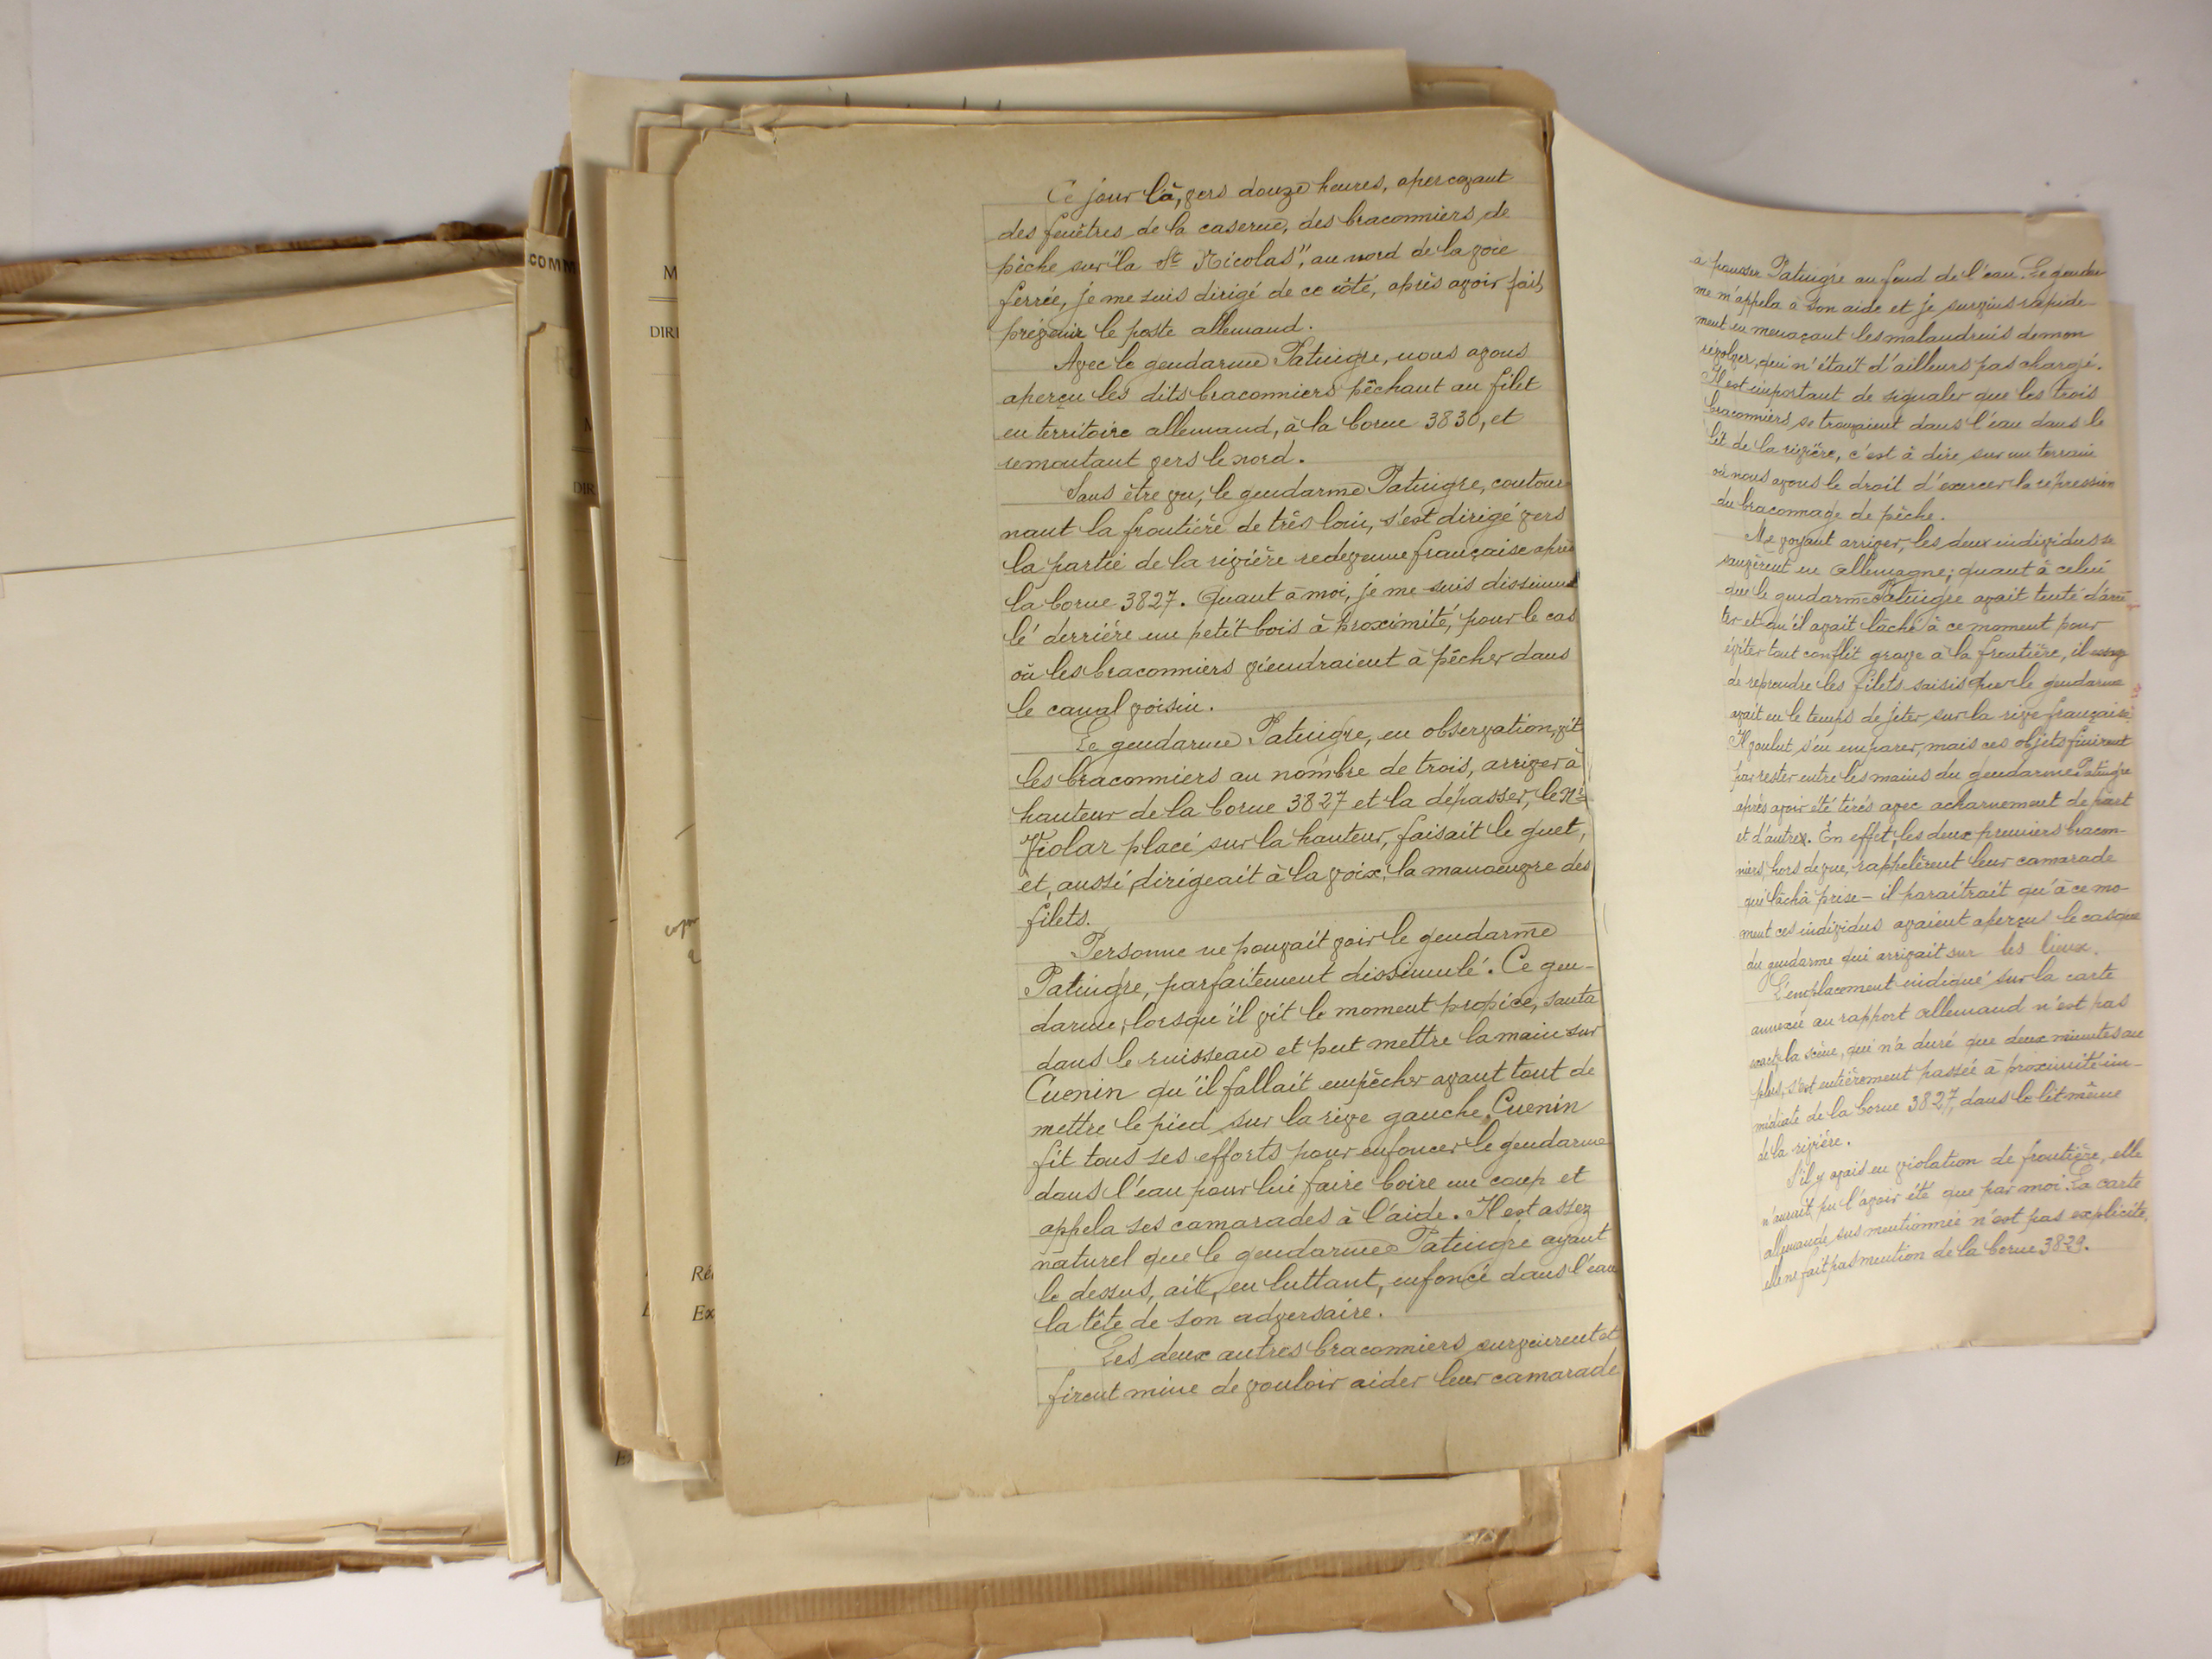 COMM
M
DIRI
M
DIR
Ré
Ex
Ce jour là, vers douze heures, apercevant
des fenêtres de la caserne, des braconniers de
pêche sur "la St Nicolas", au nord de la voie
ferrée, je me suis dirigé de ce côté, après avoir fait
prévenir le poste allemand.
Avec le gendarme Patingre, nous avons
aperçu les dits braconniers pêchant au filet
en territoire allemand, à la borne 3830, et
remontant vers le nord.
Sans être vu, le gendarme Patingre, contour
nant la frontière de très loin, s'est dirigé vers
la partie de la rivière redevenue française après
la borne 3827. Quant à moi, je me suis dissimu
lé derrière un petit bois à proximité, pour le cas
où les braconniers viendraient à pêcher dans
le canal voisin.
Le gendarme Patingre, en observation, vit
les braconniers au nombre de trois, arriver à
hauteur de la borne 3827 et la dépasser, le Né
Violar placé sur la hauteur, faisait le guet,
et, aussi, dirigeait à la voix, la manoeuvre des
filets.
Personne ne pouvait voir le gendarme
Patingre, parfaitement dissimulé. Ce gen-
darme, lorsqu'il vit le moment propice, sauta
dans le ruisseau et put mettre la main sur
Cuenin qu'il fallait empêcher avant tout de
mettre le pied sur la rive gauche. Cuenin
fit tous ses efforts pour enfoncer le gendarme
dans l'eau pour lui faire boire un coup et
appela ses camarades à l'aide. Il est assez
naturel que le gendarme Patingre ayant
le dessus, ait, en luttant, enfoncé dans l'eau
la tête de son adversaire.
Les deux autres braconniers survinrent et
firent mine de vouloir aider leur camarade
à pousser Patingre au fond de l'eau. Le gendar
me m'appela à son aide et je survins rapide-
ment en menaçant les malandrins de mon
révolver, qui n'était d'ailleurs pas chargé.
Il est important de signaler que les trois
braconniers se trouvaient dans l'eau dans le
lit de la rivière, c'est à dire sur un terrain
où nous avons le droit d'exercer la répression
du braconnage de pêche.
Me voyant arriver, les deux individus se
sauvèrent en Allemagne; quant à celui
que le gendarme Patingre avait tenté d'arrê
ter et qu'il avait lâché à ce moment pour
éviter tout conflit grave à la frontière, il
de reprendre les filets saisis que le gendarme
avait eu le temps de jeter sur la rive française.
Il voulut s'en emparer, mais ces objets finirent
par rester entre les mains du gendarme Patingre
après avoir été tirés avec acharnement de part
et d'autres. En effet, les deux premiers bracon-
niers, hors de vue, rappelèrent leur camarade
qui lâcha prise - il paraîtrait qu'à ce mo-
ment ces individus avaient aperçus le casque
du gendarme qui arrivait sur les lieux.
L'emplacement indiqué sur la carte
annexée au rapport allemand n'est pas
exact, la scène, qui n'a duré que deux minutes au
plus, s'est entièrement passée à proximité im-
médiate de la borne 3827, dans le lit même
de la rivière.
S'il y avait eu violation de frontière, elle
n'aurait pu l'avoir été que par moi. La carte
allemande sus mentionnée n'est pas explicite,
elle ne fait pas mention de la borne 3829.